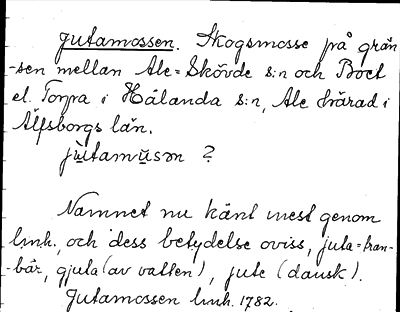 Jutamossen. Skogsmosse på grän-
-sen mellan Ale=Skövde s:n och Boet
el. Torpa i Hålanda s:n, Ale härad i
Älfsborgs län.
jùtamùsm ?
Namnet nu känt mest genom
link., och dess betydelse oviss, juta=tran-
-bär, gjuta (av vatten), jute (dansk).
Jutamossen link. 1782.